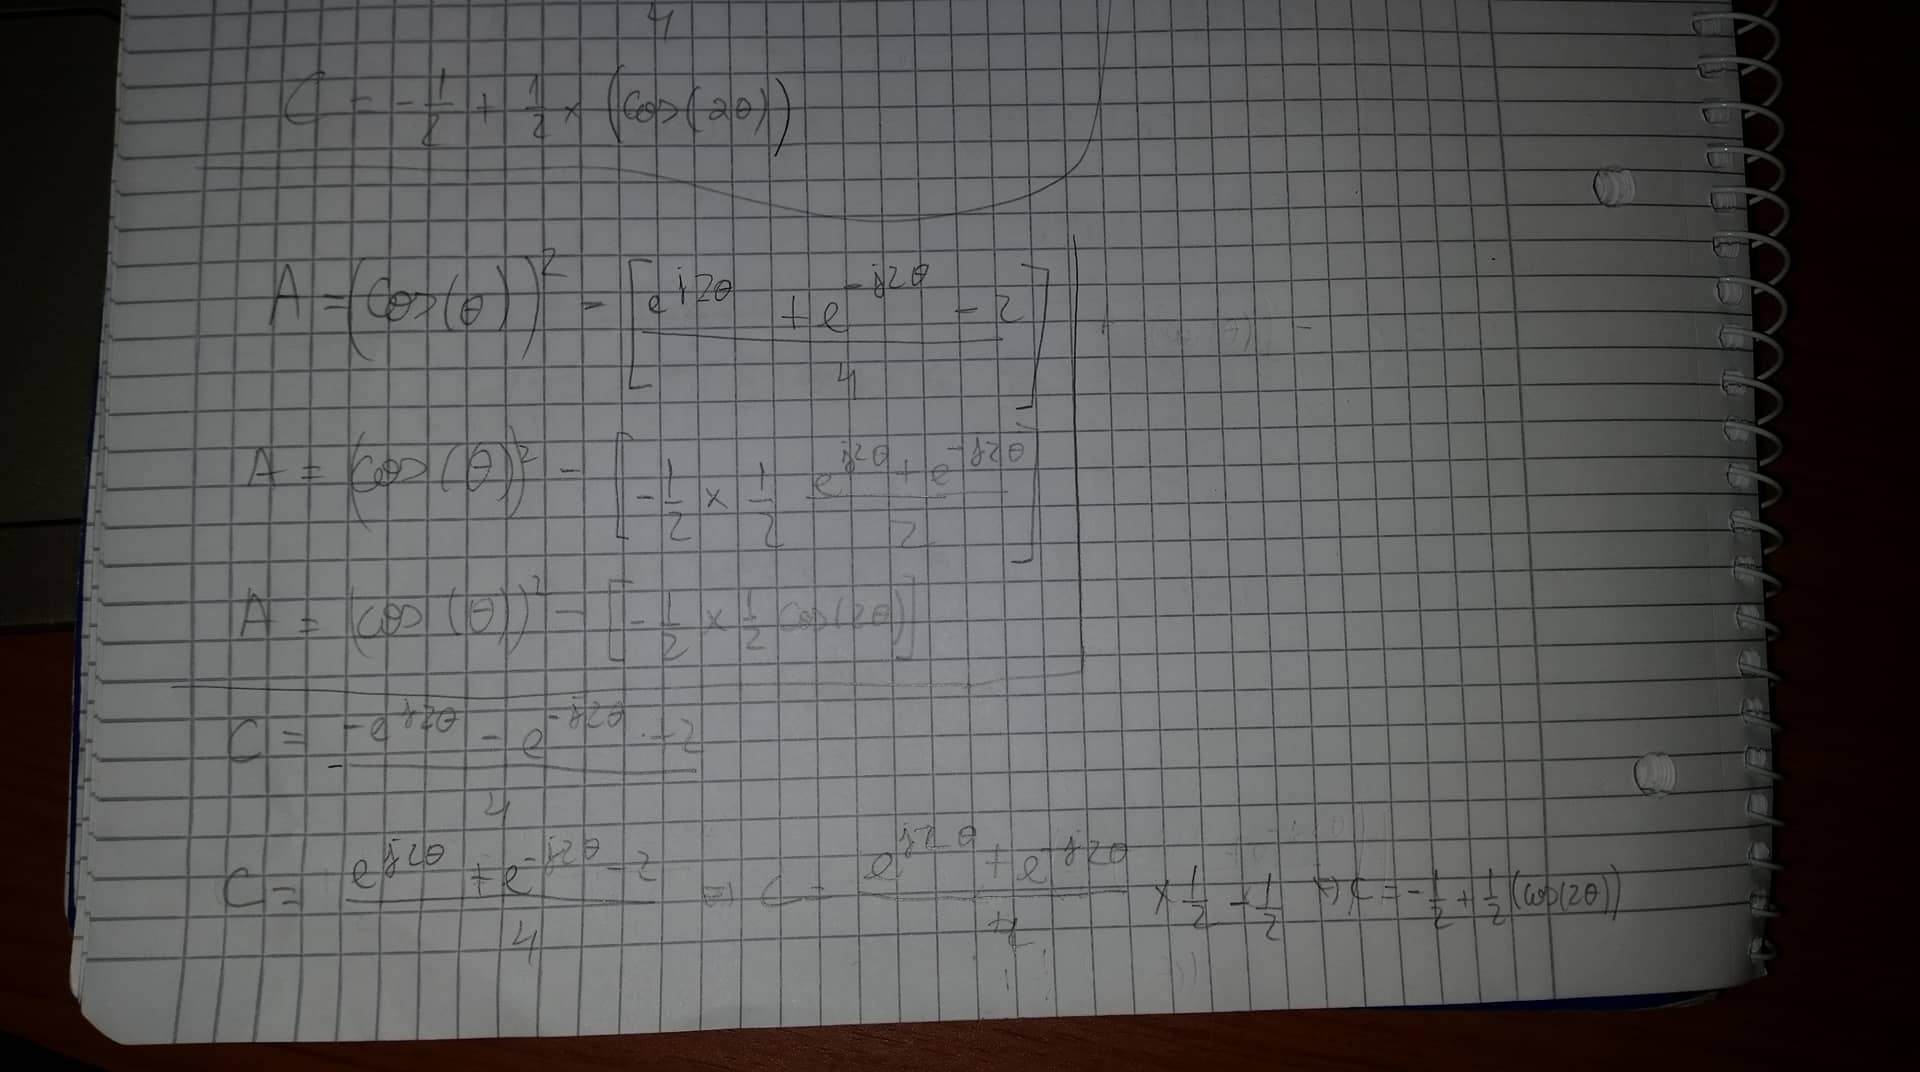 4
C = - 1/2 + 1/2 × (cos(2θ))
A = (cos(θ))² - [(e^{j2θ} + e^{-j2θ} - 2)/4]
A = (cos(θ))² - [-1/2 × 1/2 (e^{j2θ} + e^{-j2θ})/2]
A = (cos(θ))² - [-1/2 × 1/2 cos(2θ)]
C = - (-e^{j2θ} - e^{-j2θ} + 2)/4
C = (e^{j2θ} + e^{-j2θ} - 2)/4 => C = (e^{j2θ} + e^{-j2θ}) × 1/2 - 1/2 => C = -1/2 + 1/2 (cos(2θ))